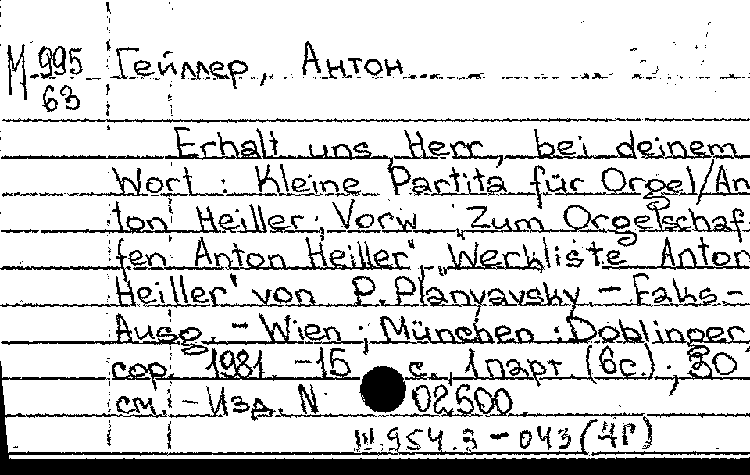 М 995 Геймер, Антон
63
Erhalt uns, Herr, bei deinem
Wort : Kleine Partita für Orgel/An
ton Heiller; Vorw. „Zum Orgelschaf
fen Anton Heiller", „Werkliste Anton
Heiller" von P. Planyavsky. - Faks.-
Ausg. - Wien ; München : Doblinger,
cop. 1981. - 15 с., 1 парт. (6с.) ; 30
см. - Изд. N 02500.
Ш.954.3-043(4Г)